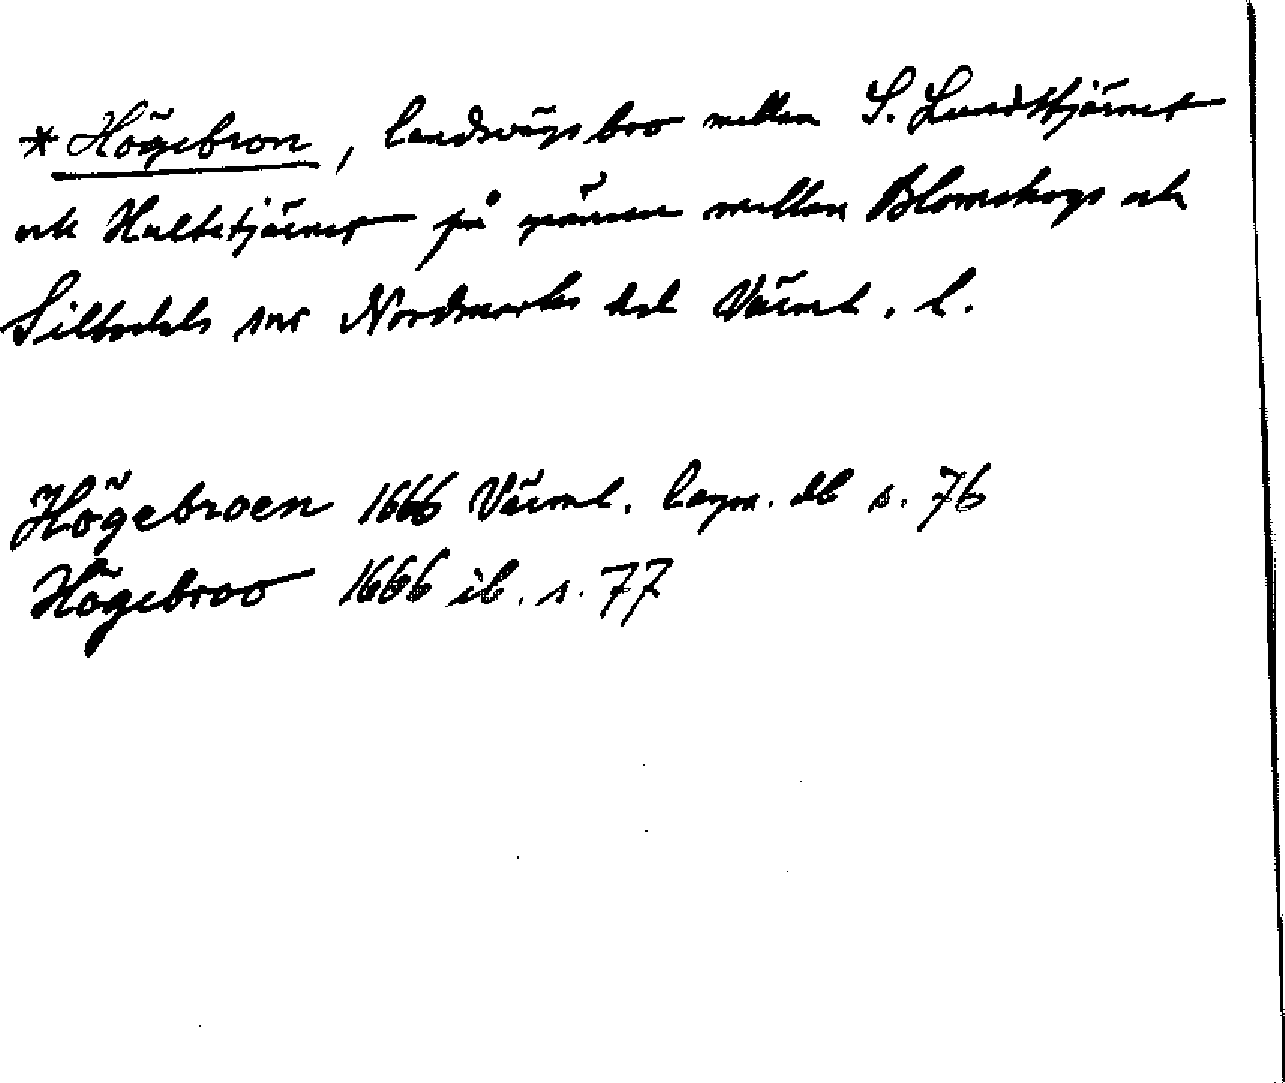 * Högebron, landsvägsbro mellan S. Lundstjärnet
och Hultetjärnet på gränsen mellan Blomskogs och
Silbodals snr Nordmarks hd Värml. l.
Högebroen 1666 Värml. lagm. db s. 76
Högebroo 1666 ib. s. 77